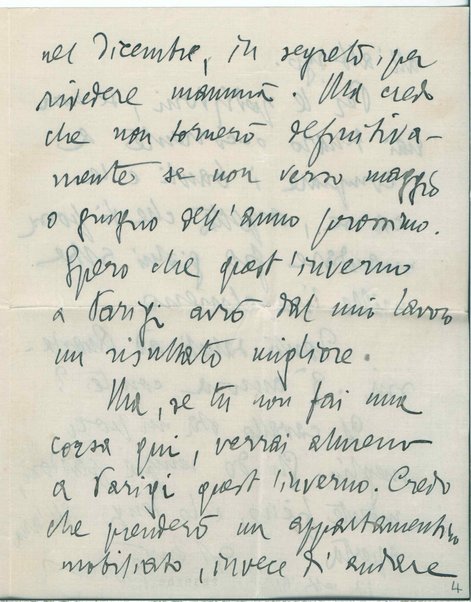 nel dicembre, in segreto, per
rivedere mammà. Ma credo
che non tornerò definitiva-
mente se non verso maggio
o giugno dell'anno prossimo.
Spero che quest'inverno
a Parigi avrò dal mio lavoro
un risultato migliore.
Ma, se tu non fai una
corsa qui, verrai almeno
a Parigi quest'inverno. Credo
che prenderò un appartamentino
mobiliato, invece di andare
4